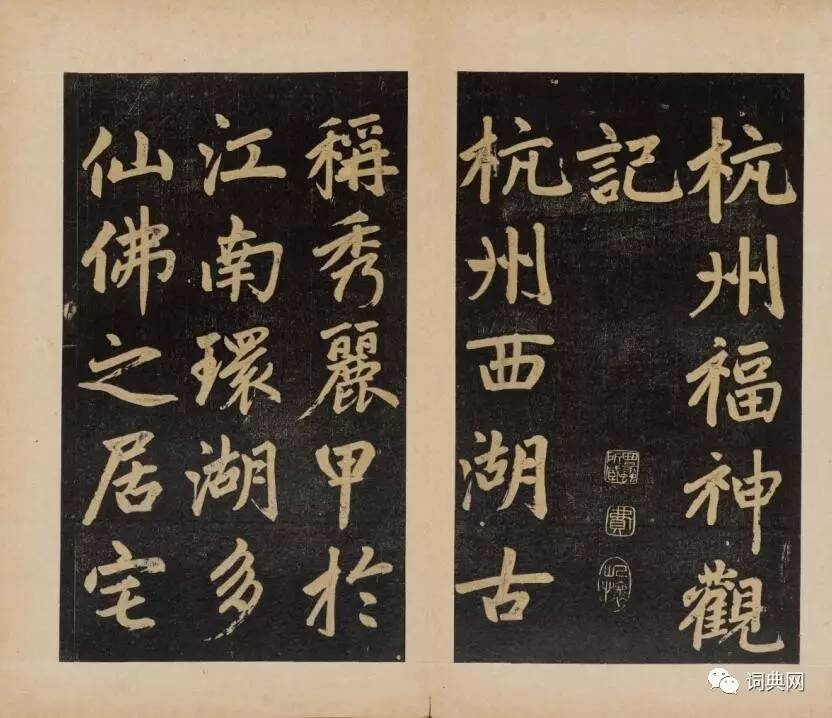 杭州福神觀
記
杭州西湖古
稱秀麗甲於
江南環湖多
仙佛之居宅
費
词典网